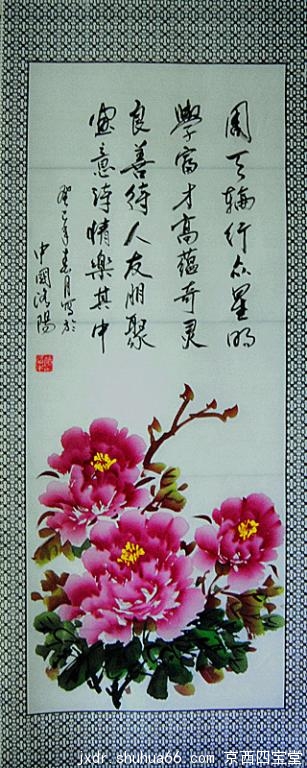 周天輪行众星明
學富才高蘊奇灵
良善待人友朋聚
画意诗情樂其中
癸巳年春月寫於
中國沈陽
jxdr.shuhua66.com 京西四宝堂